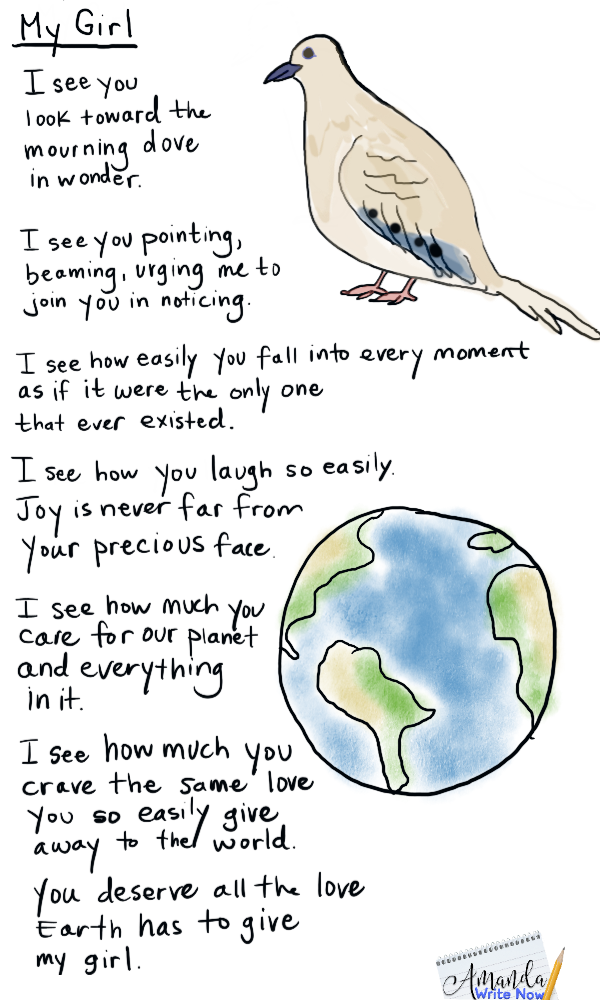 My Girl
I see you
look toward the
mourning dove
in wonder.
I see you pointing,
beaming, urging me to
join you in noticing.
I see how easily you fall into every moment
as if it were the only one
that ever existed.
I see how you laugh so easily.
Joy is never far from
your precious face.
I see how much you
care for our planet
and everything
in it.
I see how much you
crave the same love
you so easily give
away to the world.
You deserve all the love
Earth has to give
my girl.
Amanda
Write Now